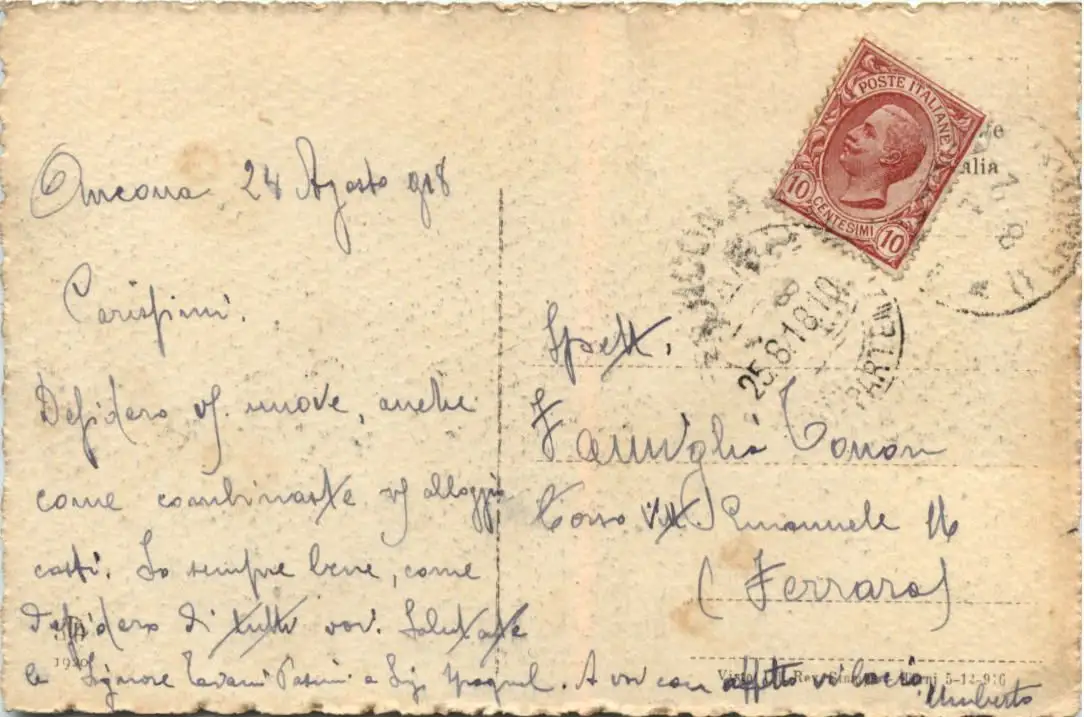 Ancona 24 Agosto 918
Carissimi.
Desidero vs. nuove, anche
come combinaste vs alloggio
costì. Io sempre bene, come
desidero di tutti voi. Salutate
le Signore Pasini e Sig. Spagnol. A voi con affetto vi bacio
Umberto
POSTE ITALIANE
10 CENTESIMI 10
alia
25.8.18.10
PARTEN
Spett.
Famiglia Tonon
Corso Vitt Emanuele 16
(Ferrara)
1920
Visto Uff. Rev. Stampa Terni 5-12-916